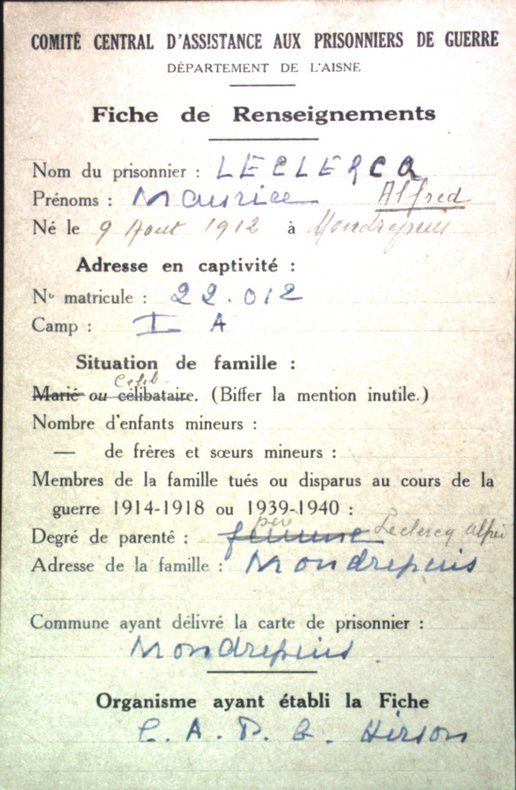 COMITÉ CENTRAL D'ASSISTANCE AUX PRISONNIERS DE GUERRE
DÉPARTEMENT DE L'AISNE
Fiche de Renseignements
Nom du prisonnier : LECLERCQ
Prénoms : Maurice Alfred
Né le 9 Aout 1912 à Mondrepuis
Adresse en captivité :
No matricule : 22.012
Camp : I A
Situation de famille :
Célib
Marié ou célibataire. (Biffer la mention inutile.)
Nombre d'enfants mineurs :
— de frères et sœurs mineurs :
Membres de la famille tués ou disparus au cours de la
guerre 1914-1918 ou 1939-1940 :
père
Degré de parenté : femme Leclercq Alfred
Adresse de la famille : Mondrepuis
Commune ayant délivré la carte de prisonnier :
Mondrepuis
Organisme ayant établi la Fiche
C. A. P. G. Hirson